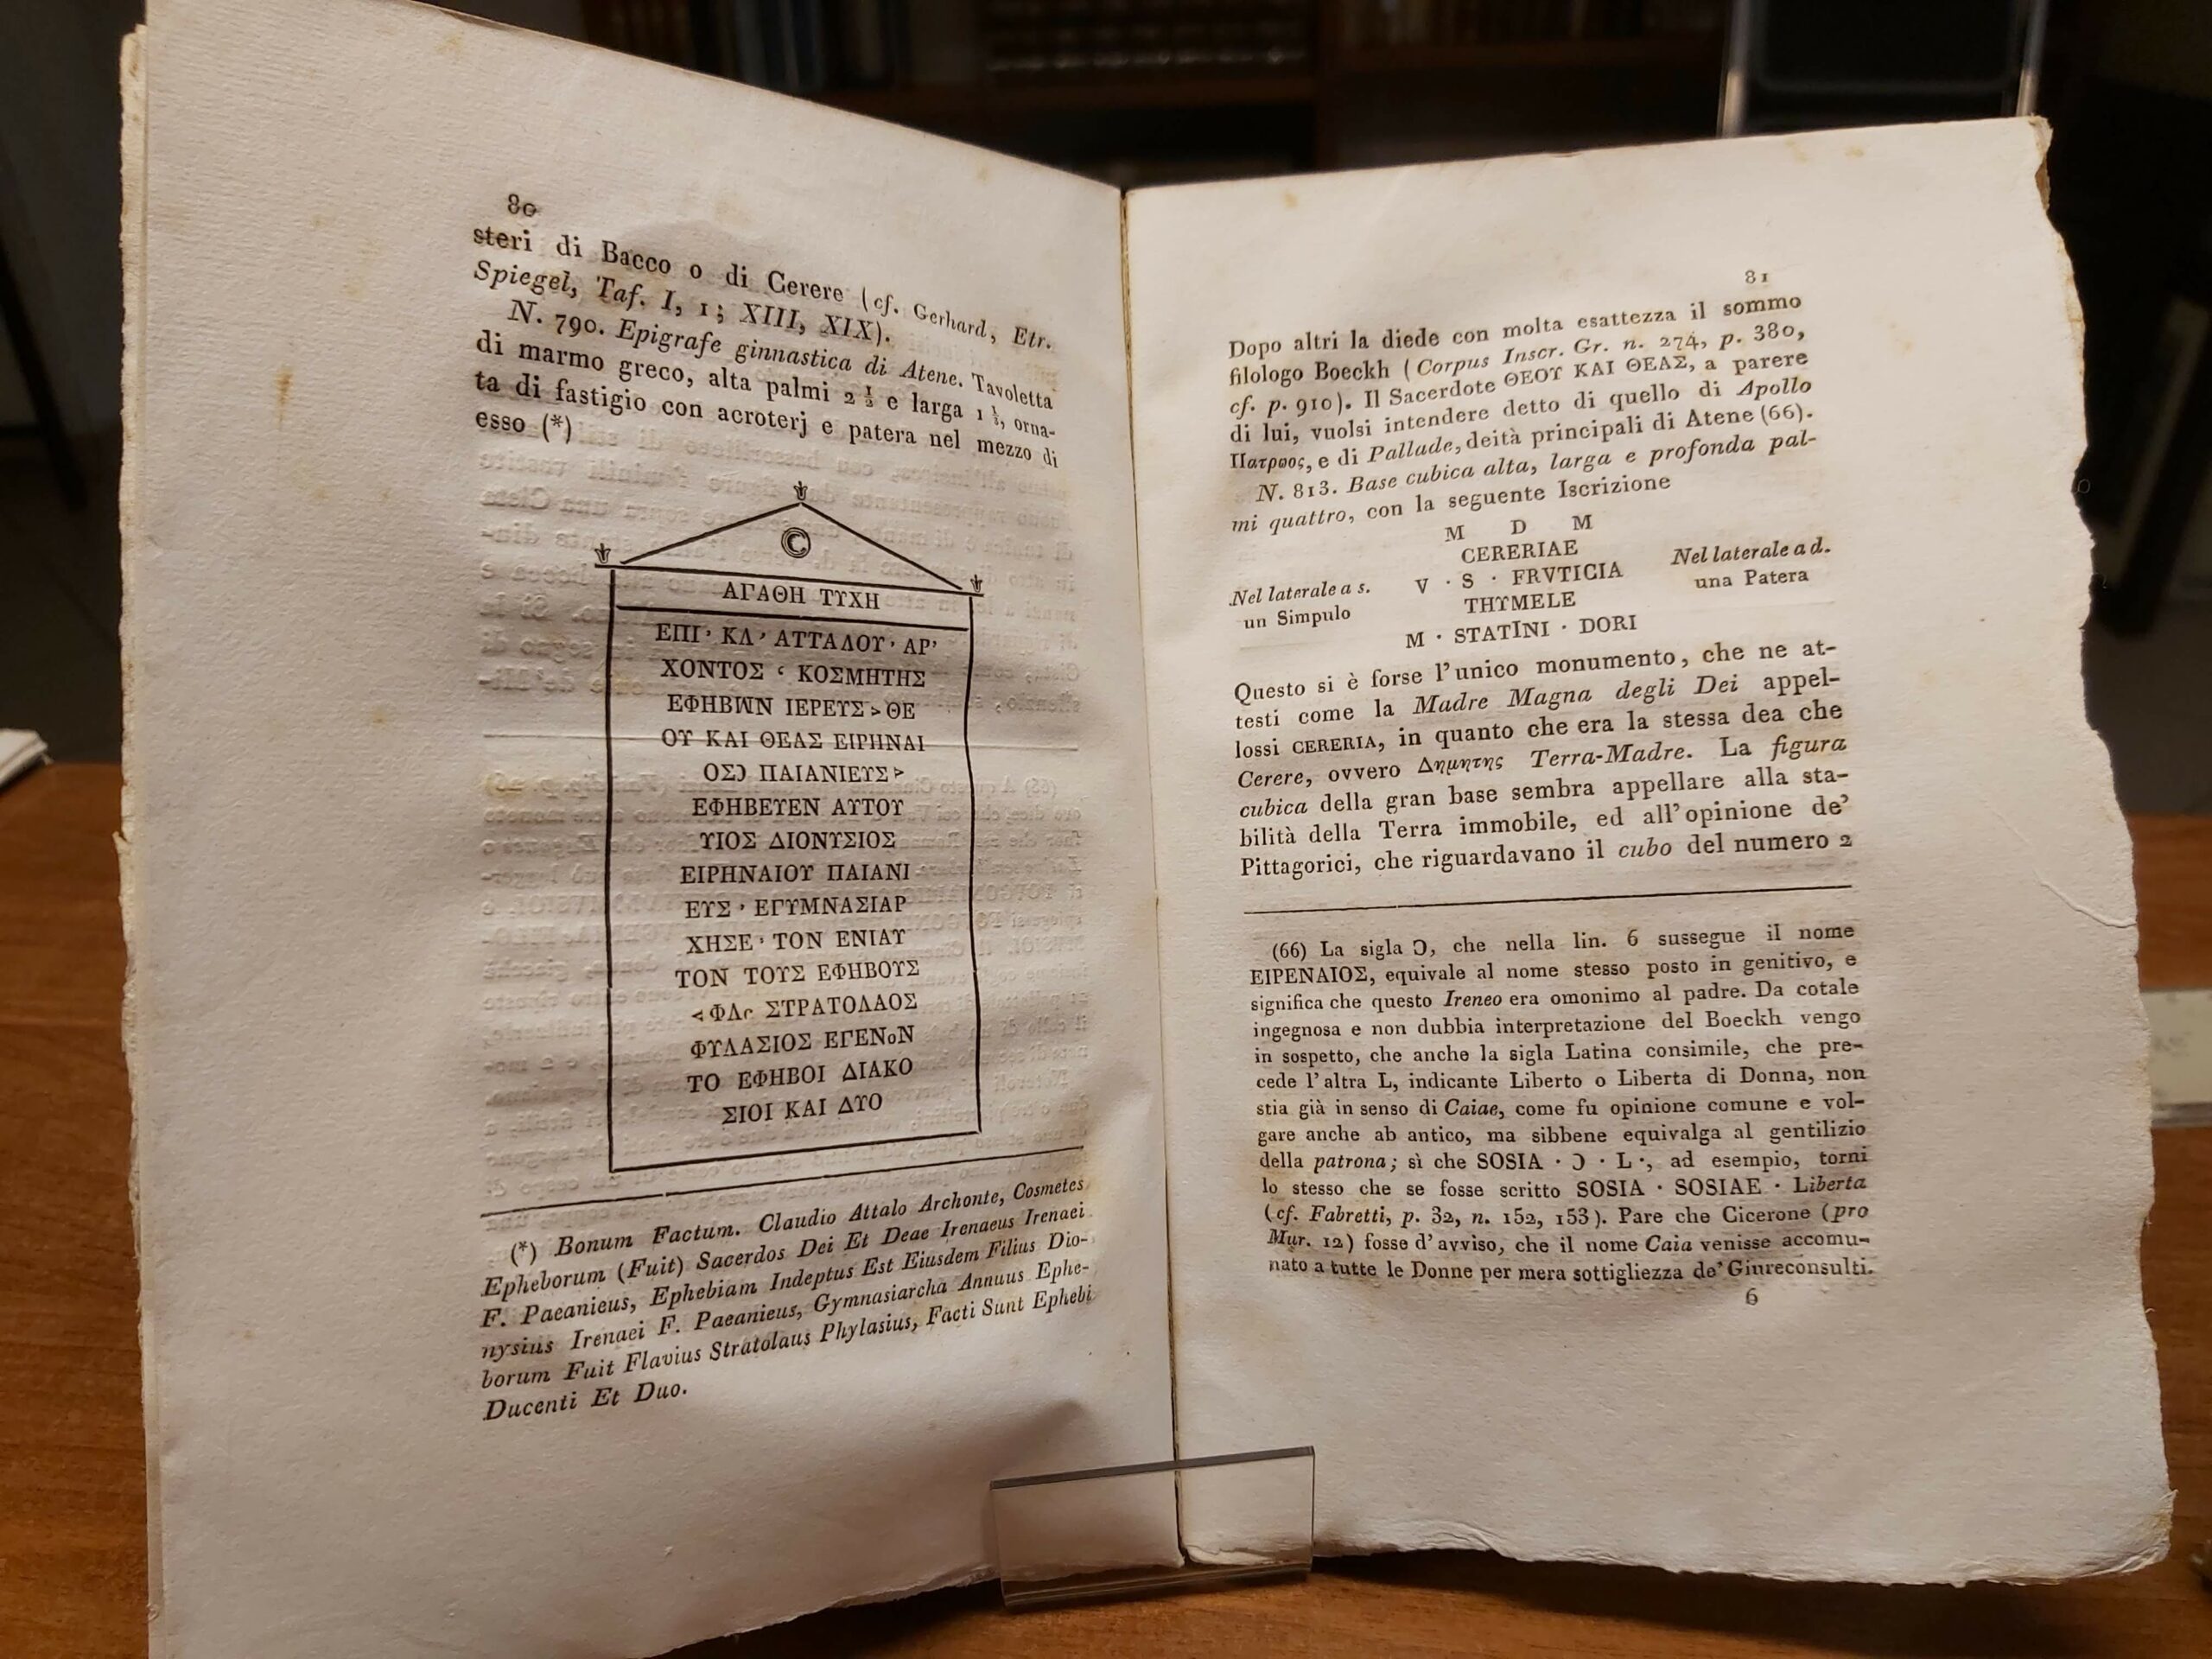 80
steri di Bacco o di Cerere (cf. Gerhard, Etr.
Spiegel, Taf. I, 1; XIII, XIX).
N. 790. Epigrafe ginnastica di Atene. Tavoletta
di marmo greco, alta palmi 2 ½ e larga 1 ½, orna-
ta di fastigio con acroterj e patera nel mezzo di
esso (*)
©
ΑΓΑΘΗ ΤΥΧΗ
ΕΠΙ · ΚΛ · ΑΤΤΑΛΟΥ · ΑΡ·
ΧΟΝΤΟΣ ‹ ΚΟΣΜΗΤΗΣ
ΕΦΗΒΩΝ ΙΕΡΕΥΣ > ΘΕ
ΟΥ ΚΑΙ ΘΕΑΣ ΕΙΡΗΝΑΙ
ΟΣƆ ΠΑΙΑΝΙΕΥΣ >
ΕΦΗΒΕΥΕΝ ΑΥΤΟΥ
ΥΙΟΣ ΔΙΟΝΥΣΙΟΣ
ΕΙΡΗΝΑΙΟΥ ΠΑΙΑΝΙ
ΕΥΣ · ΕΓΥΜΝΑΣΙΑΡ
ΧΗΣΕ · ΤΟΝ ΕΝΙΑΥ
ΤΟΝ ΤΟΥΣ ΕΦΗΒΟΥΣ
< ΦΛ‹ ΣΤΡΑΤΟΛΑΟΣ
ΦΥΛΑΣΙΟΣ ΕΓΕΝοΝ
ΤΟ ΕΦΗΒΟΙ ΔΙΑΚΟ
ΣΙΟΙ ΚΑΙ ΔΥΟ
(*) Bonum Factum. Claudio Attalo Archonte, Cosmetes
Epheborum (Fuit) Sacerdos Dei Et Deae Irenaeus Irenaei
F. Paeanieus, Ephebiam Indeptus Est Eiusdem Filius Dio-
nysius Irenaei F. Paeanieus, Gymnasiarcha Annuus Ephe-
borum Fuit Flavius Stratolaus Phylasius, Facti Sunt Ephebi
Ducenti Et Duo.
81
Dopo altri la diede con molta esattezza il sommo
filologo Boeckh (Corpus Inscr. Gr. n. 274, p. 380,
cf. p. 910). Il Sacerdote ΘΕΟΥ ΚΑΙ ΘΕΑΣ, a parere
di lui, vuolsi intendere detto di quello di Apollo
Πατρωος, e di Pallade, deità principali di Atene (66).
N. 813. Base cubica alta, larga e profonda pal-
mi quattro, con la seguente Iscrizione
M D M
CERERIAE
Nel laterale a s. V · S · FRVTICIA Nel laterale a d.
un Simpulo THYMELE una Patera
M · STATINI · DORI
Questo si è forse l'unico monumento, che ne at-
testi come la Madre Magna degli Dei appel-
lossi CERERIA, in quanto che era la stessa dea che
Cerere, ovvero Δημητης Terra-Madre. La figura
cubica della gran base sembra appellare alla sta-
bilità della Terra immobile, ed all'opinione de'
Pittagorici, che riguardavano il cubo del numero 2
(66) La sigla Ɔ, che nella lin. 6 sussegue il nome
ΕΙΡΕΝΑΙΟΣ, equivale al nome stesso posto in genitivo, e
significa che questo Ireneo era omonimo al padre. Da cotale
ingegnosa e non dubbia interpretazione del Boeckh vengo
in sospetto, che anche la sigla Latina consimile, che pre-
cede l'altra L, indicante Liberto o Liberta di Donna, non
stia già in senso di Caiae, come fu opinione comune e vol-
gare anche ab antico, ma sibbene equivalga al gentilizio
della patrona; sì che SOSIA · Ɔ · L ·, ad esempio, torni
lo stesso che se fosse scritto SOSIA · SOSIAE · Liberta
(cf. Fabretti, p. 32, n. 152, 153). Pare che Cicerone (pro
Mur. 12) fosse d'avviso, che il nome Caia venisse accomu-
nato a tutte le Donne per mera sottigliezza de' Giureconsulti.
6